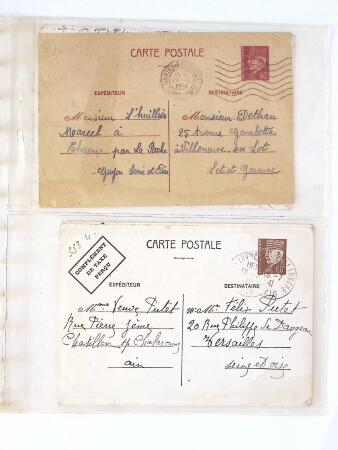 CARTE POSTALE
EXPÉDITEUR
DESTINATAIRE
Monsieur L'huillier
Monsieur Dethan
Marcel à
25 Avenue Gambetta
par La Roche
à Villeneuve sur Lot
Guyon Seine et Oise
Lot et Garonne
353
COMPLÉMENT
DE TAXE
PERÇU
CARTE POSTALE
EXPÉDITEUR
DESTINATAIRE
Mme Veuve Putet
Mr Mme Félix Putet
Rue Pierre
20 Rue Philippe de Dangeau
Chatillon sp Chalaronne
Versailles
ain
Seine et Oise